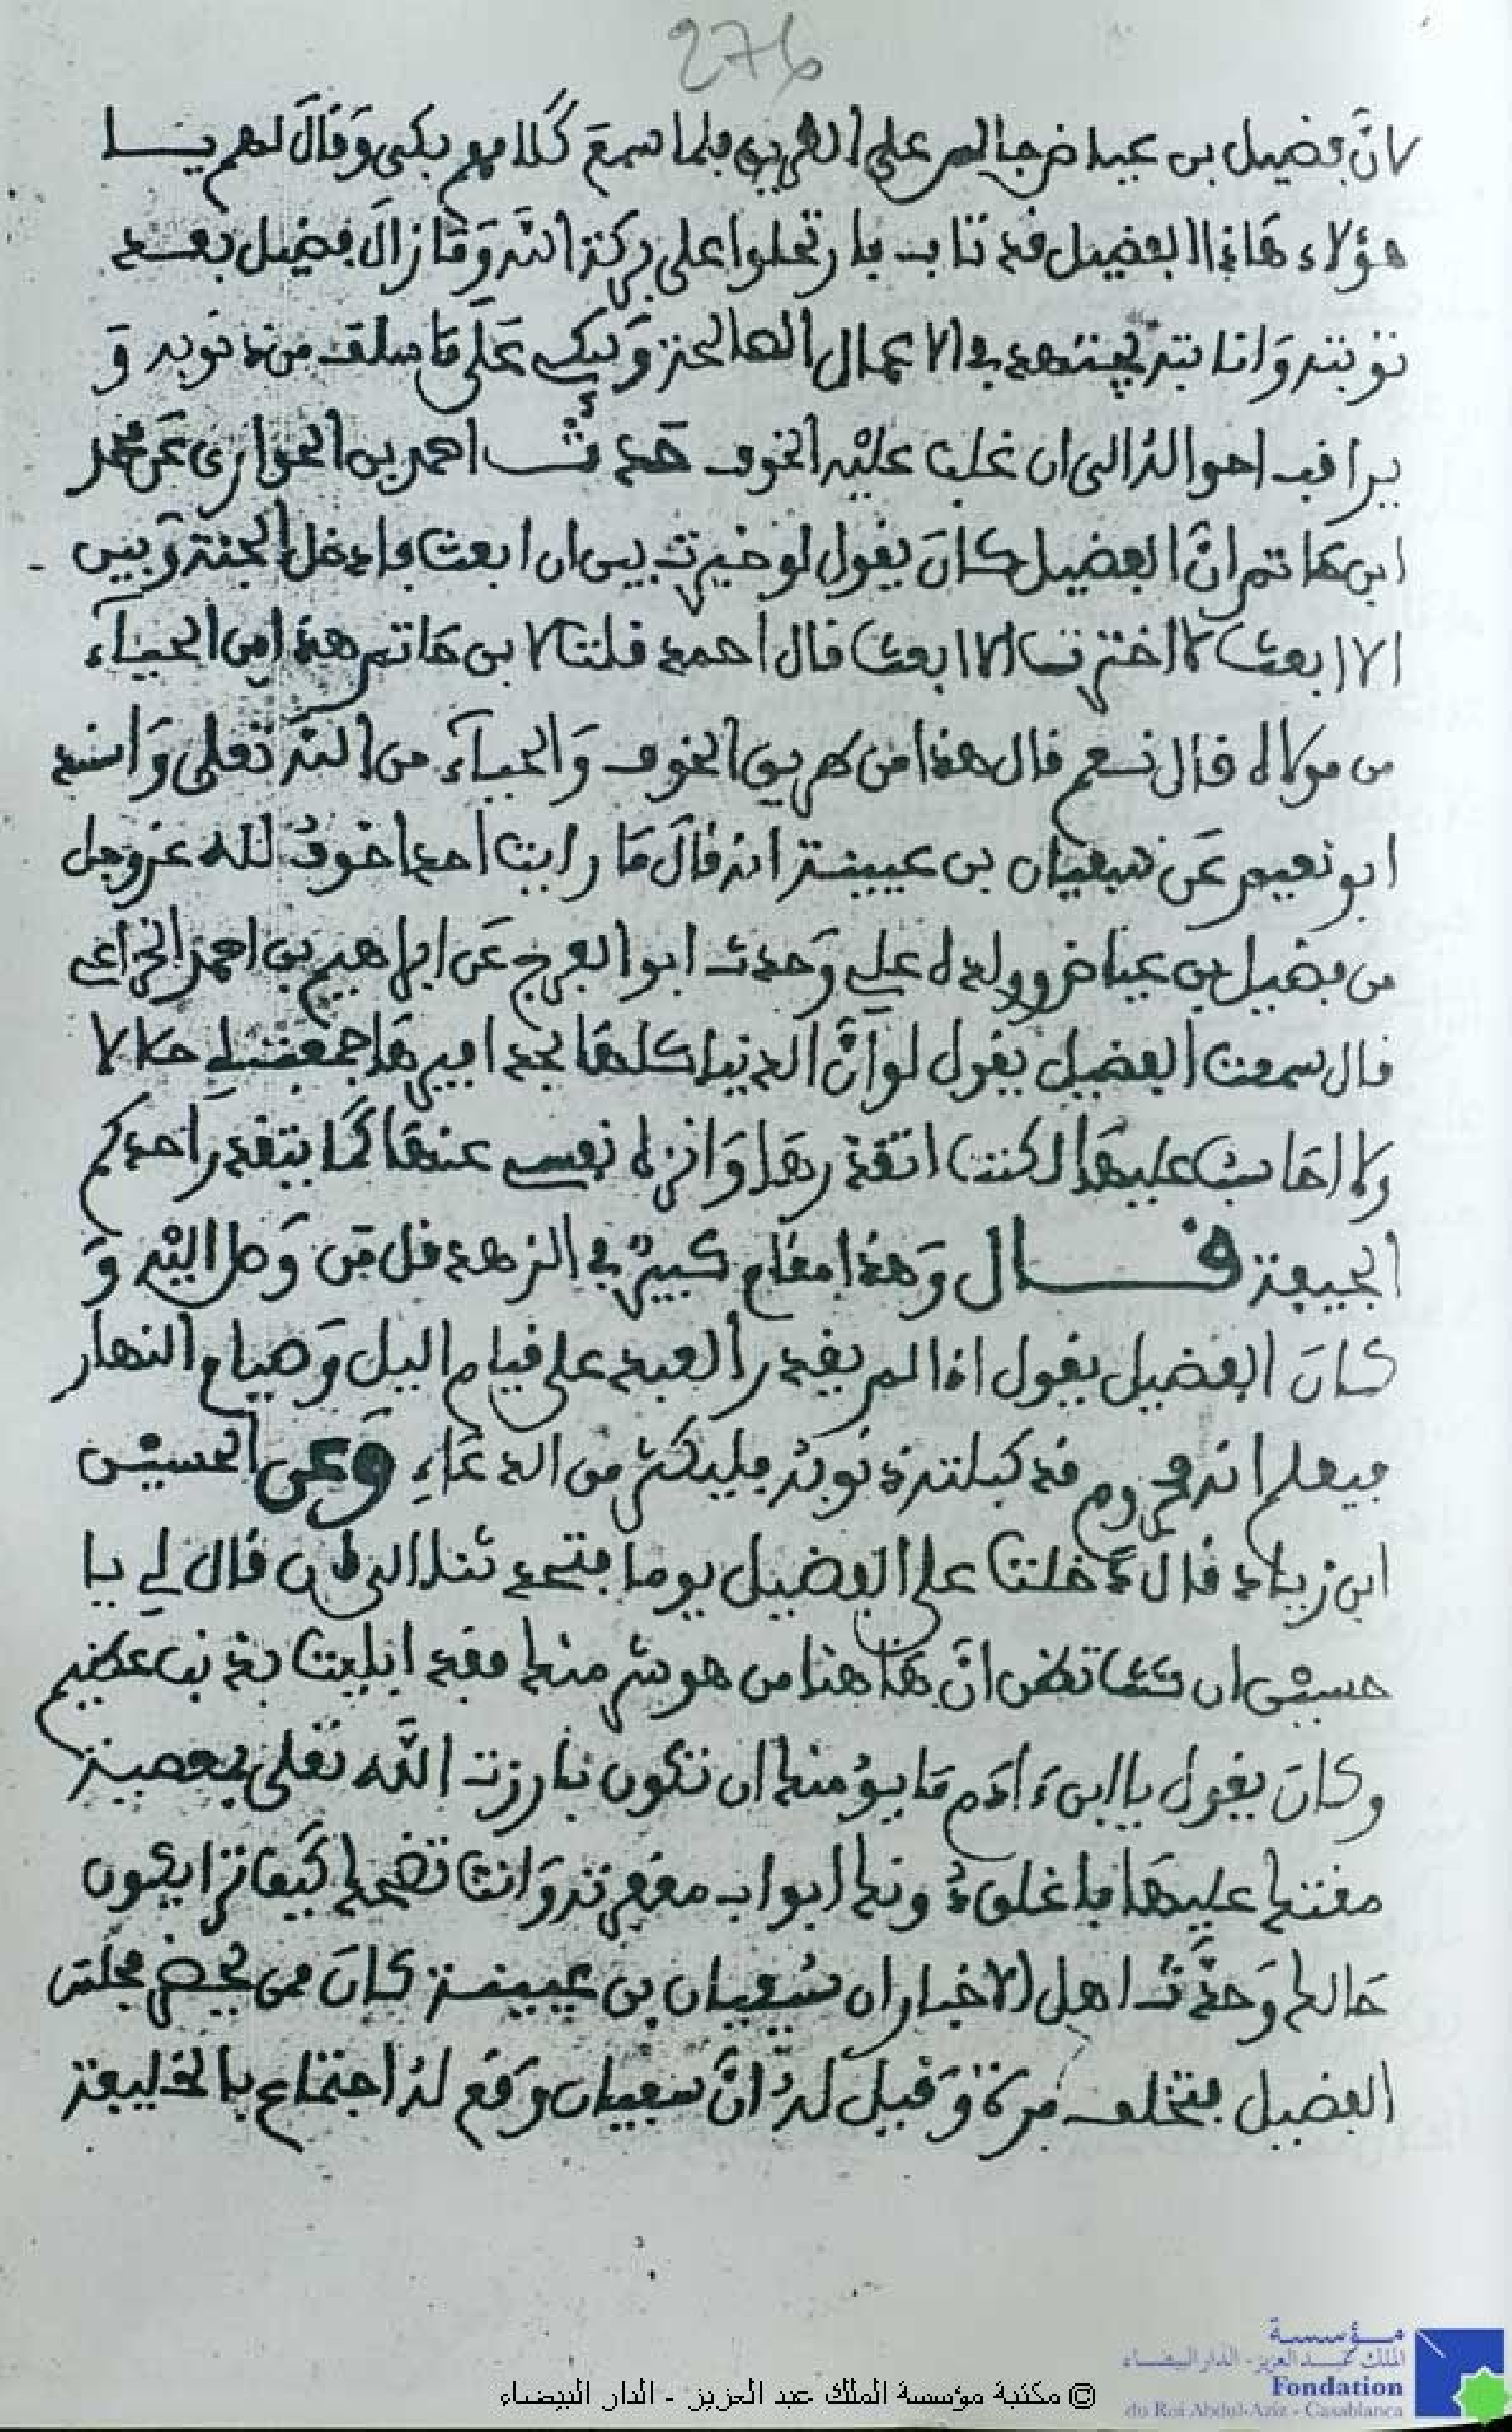 276
لان فضيل بن عياض خرج اليهم على الطريق فلما سمع كلامهم بكى وَقالَ لهم يا
هؤلاء هاذا الفضيل قد تاب فارتحلوا على بركة اللّه وَمَا زالَ فضيل بعد
توبته وَانابته يجتهد في الاعمال الصالحة وَيبكي عَلَى مَا سلف من ذنوبه وَ
يراقب احواله الى ان غلب عليه الخوف حَدّث احمد بن الحواري عَن محمد
ابن حاتم انَّ الفضيل كانَ يقول لو خيرت بين ان ابعث فادخل الجنة وَبين
الا ابعث لاخترت الا ابعث قال احمد قلت لابن حَاتم هذا من الحياء
من مولاه قال نعم قال هذا من طريق الخوف وَالحياء من اللّه تعلى وَاسند
ابو نعيم عَن سفيان بن عيينة انه قالَ مَا رايت احدا اخوف لله عز وجل
من فضيل بن عياض وولده علي وَحدث ابو الفرج عَن ابراهيم بن احمد الخزاعي
قال سمعت الفضيل يقول لو انَّ الدنيا كلها بحذافيرها جمعت لي حلالا
ولا احاسب عليها لكنت اتقذرها وَانزه نفسي عنها كما يتقذر احدكم
الجيفة قال وَهذا مقام كبير في الزهد قل مَن وَصل اليه وَ
كانَ الفضيل يقول اذا لم يقدر العبد على قيام اليل وَصيام النهار
فيعلم انه محروم قد كبلته ذنوبه فليكثر من الدعَاءِ وعن الحسين
ابن زياد قال دخلت على الفضيل يوما فتحدثنا قال لي يا
حسين ان كنت تظن انَّ هَاهنا من هو شر منك فقد ابليت بذنب عظيم
وكانَ يقول يا ابن ءادم مَا يؤمنك ان تكون بارزت اللّه تعلى بمعصية
مقتك عليها فاغلق دونك ابواب مغفرته وَانت تضحك كيف ترا يكون
حَالك وَحدَّث اهل الاخبار ان سُفيان بن عيينة كانَ ممن يحضر مجلس
الفضيل فتخلف مرة وَقيل لهُ انَّ سفيان وَقع لهُ اجتماع بالخليفة
مؤسسة
الملك عبد العزيز - الدار البيضاء
Fondation
du Roi Abdul-Aziz - Casablanca
© مكتبة مؤسسة الملك عبد العزيز - الدار البيضاء